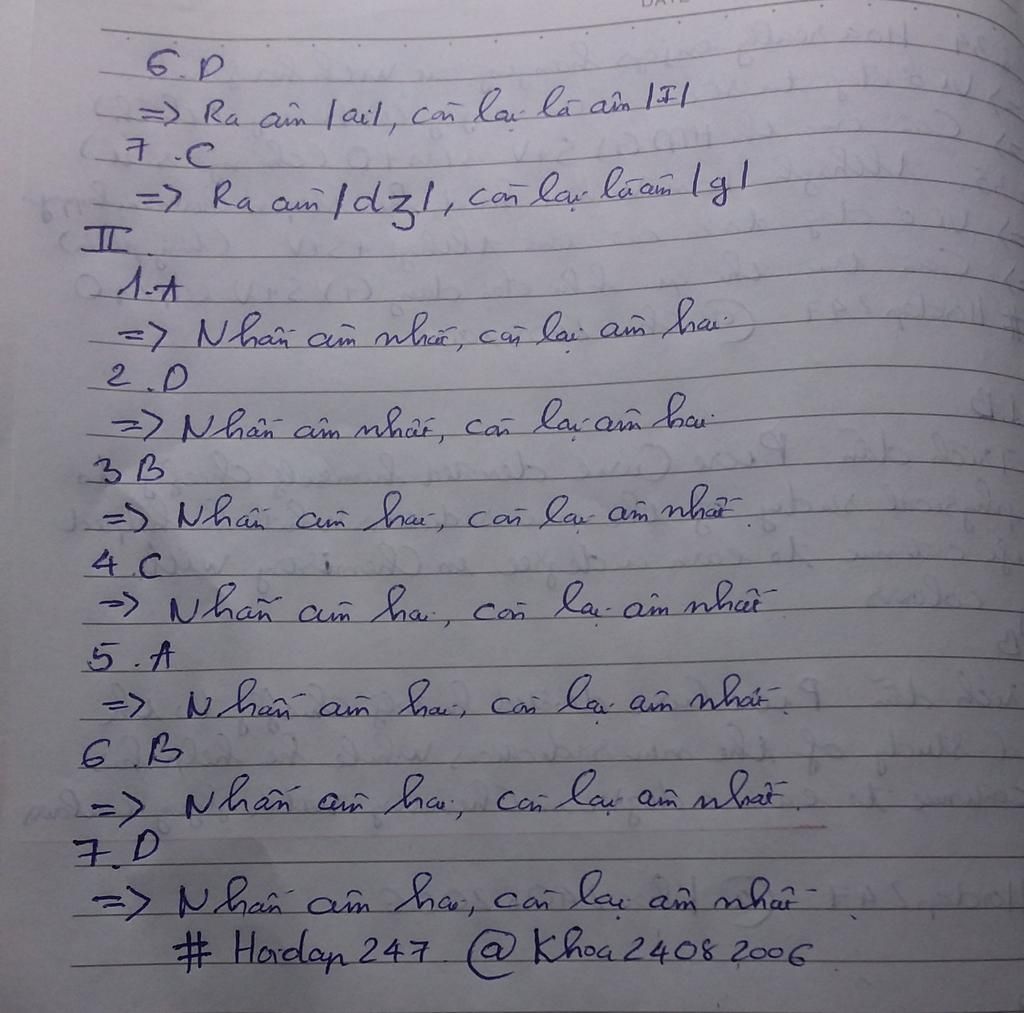 6.D
=> Ra âm /ai/, còn lại là âm /I/
7.C
=> Ra âm /dʒ/, còn lại là âm /g/
II.
1.A
=> Nhấn âm nhất, còn lại âm hai
2.D
=> Nhấn âm nhất, còn lại âm hai
3 B
=> Nhấn âm hai, còn lại âm nhất
4.C
=> Nhấn âm hai, còn lại âm nhất
5.A
=> Nhấn âm hai, còn lại âm nhất.
6.B
=> Nhấn âm hai, còn lại âm nhất.
7.D
=> Nhấn âm hai, còn lại âm nhất
# Hoidap 247 @Khoa24082006